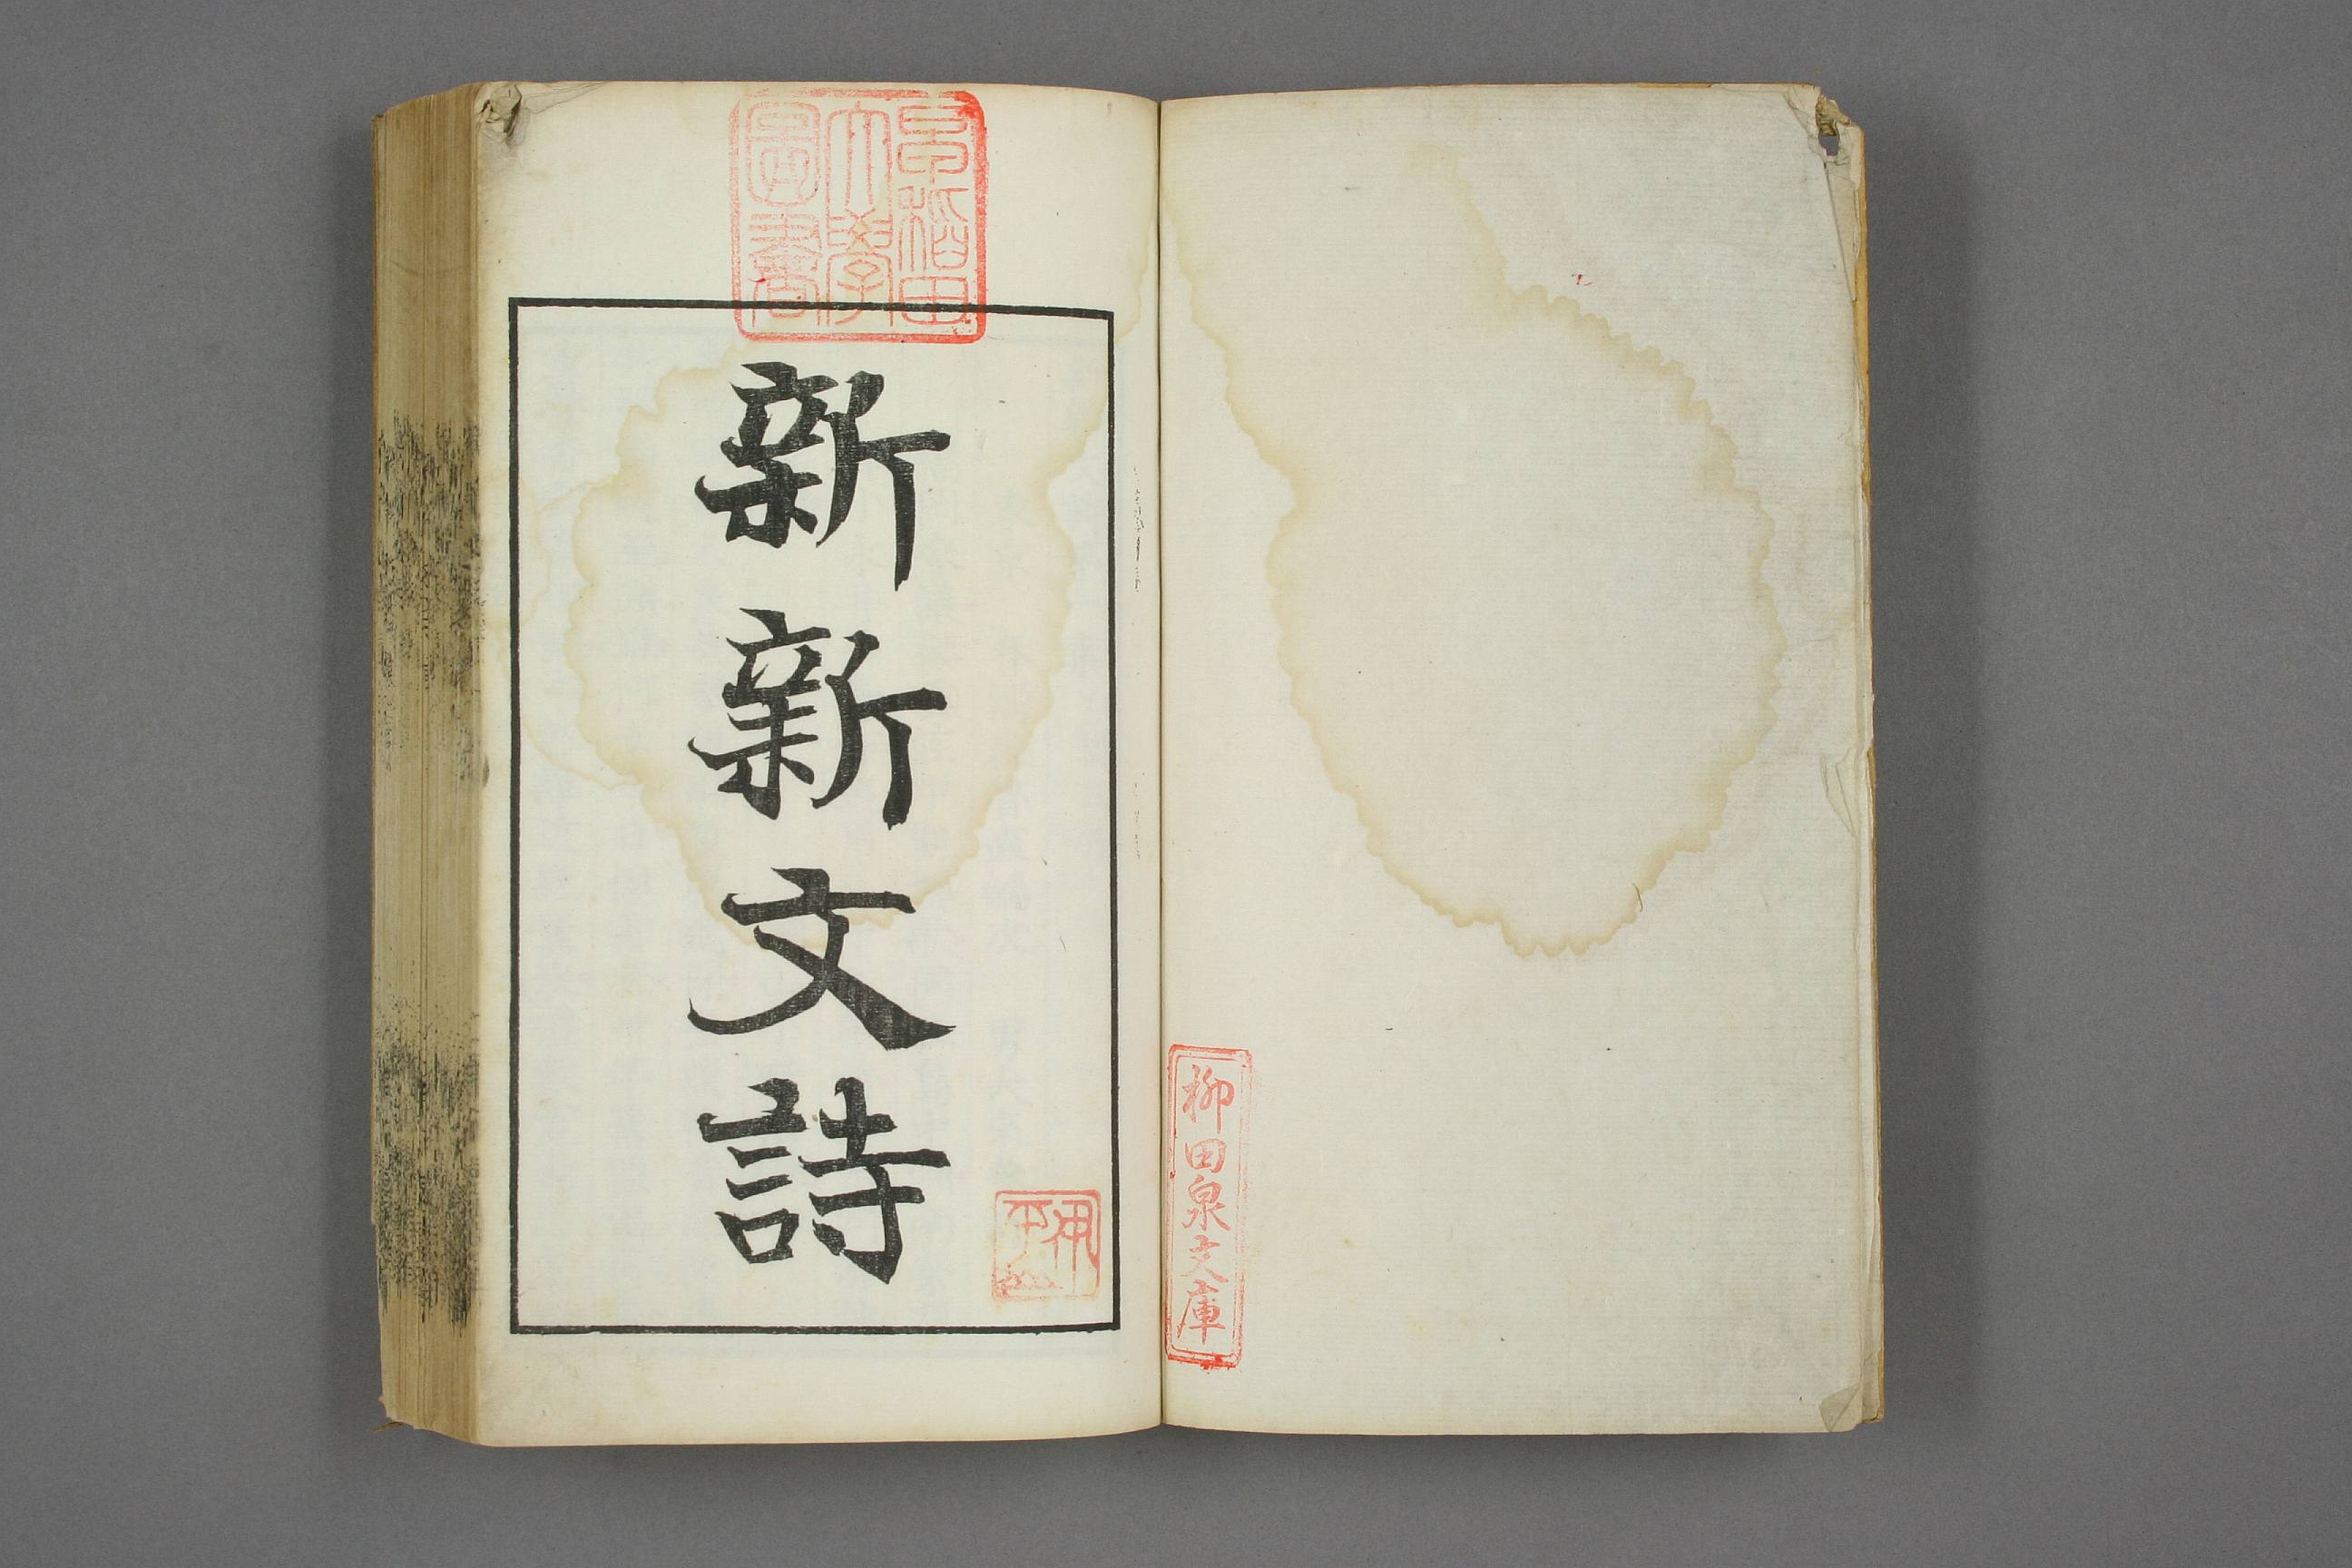 柳田泉文庫
早稲田
大學
圖書
新新文詩